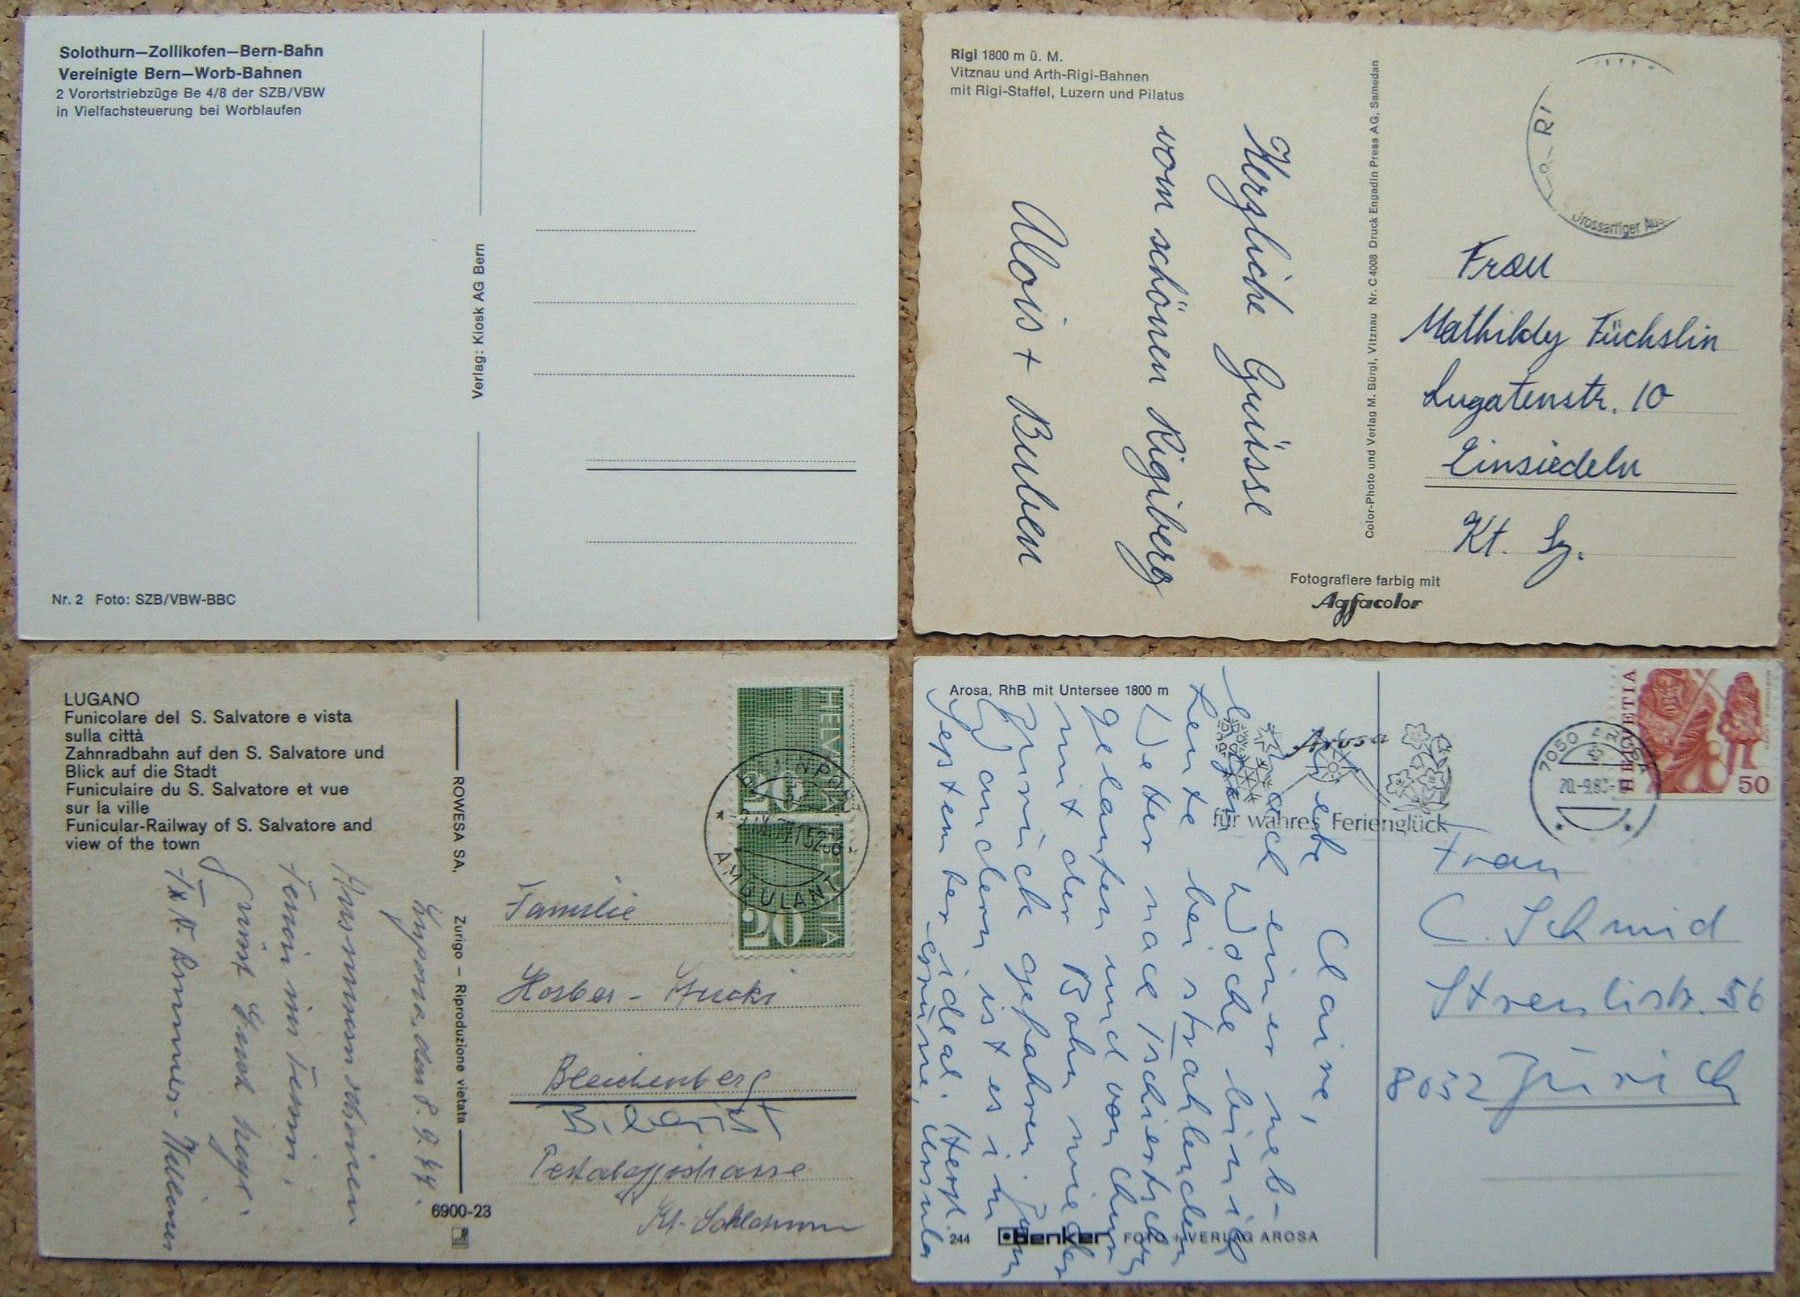 Solothurn—Zollikofen—Bern-Bahn
Vereinigte Bern—Worb-Bahnen
2 Vorortstriebzüge Be 4/8 der SZB/VBW
in Vielfachsteuerung bei Worblaufen
Verlag: Kiosk AG Bern
Nr. 2 Foto: SZB/VBW-BBC
Rigi 1800 m ü. M.
Vitznau und Arth-Rigi-Bahnen
mit Rigi-Staffel, Luzern und Pilatus
Herzliche Grüsse
vom schönen Rigiberg
Alois + Buben
Color-Photo und Verlag M. Bürgi, Vitznau Nr. C 4008 Druck Engadin Press AG, Samedan
Grossartiger Aus
Frau
Mathildy Füchslin
Lugatenstr. 10
Einsiedeln
Kt. Sz.
Fotografiere farbig mit
Agfacolor
LUGANO
Funicolare del S. Salvatore e vista
sulla città
Zahnradbahn auf den S. Salvatore und
Blick auf die Stadt
Funiculaire du S. Salvatore et vue
sur la ville
Funicular-Railway of S. Salvatore and
view of the town
den 8. 9. 77.
wunderschönen
Tessin,
ROWESA SA, Zurigo – Riproduzione vietata
6900-23
HELVETIA
20
HELVETIA
20
AMBULANT
Familie
Bleichenberg
Biberist
Pestalozzistrasse
Kt. Solothurn
Arosa, RhB mit Untersee 1800 m
Liebe Claire,
nach einer neb-
ligen Woche bin ich
heute bei strahlendem
Wetter nach Tschiertschen
gelaufen und von Chur
mit der Bahn wieder
zurück gefahren. Zum
Wandern ist es im
September ideal. Herzl.
Grüsse, Ursula
Arosa
für wahres Ferienglück
7050 AROSA
HELVETIA
50
Frau
C. Schmid
8032 Zürich
244 benker FOTO + VERLAG AROSA